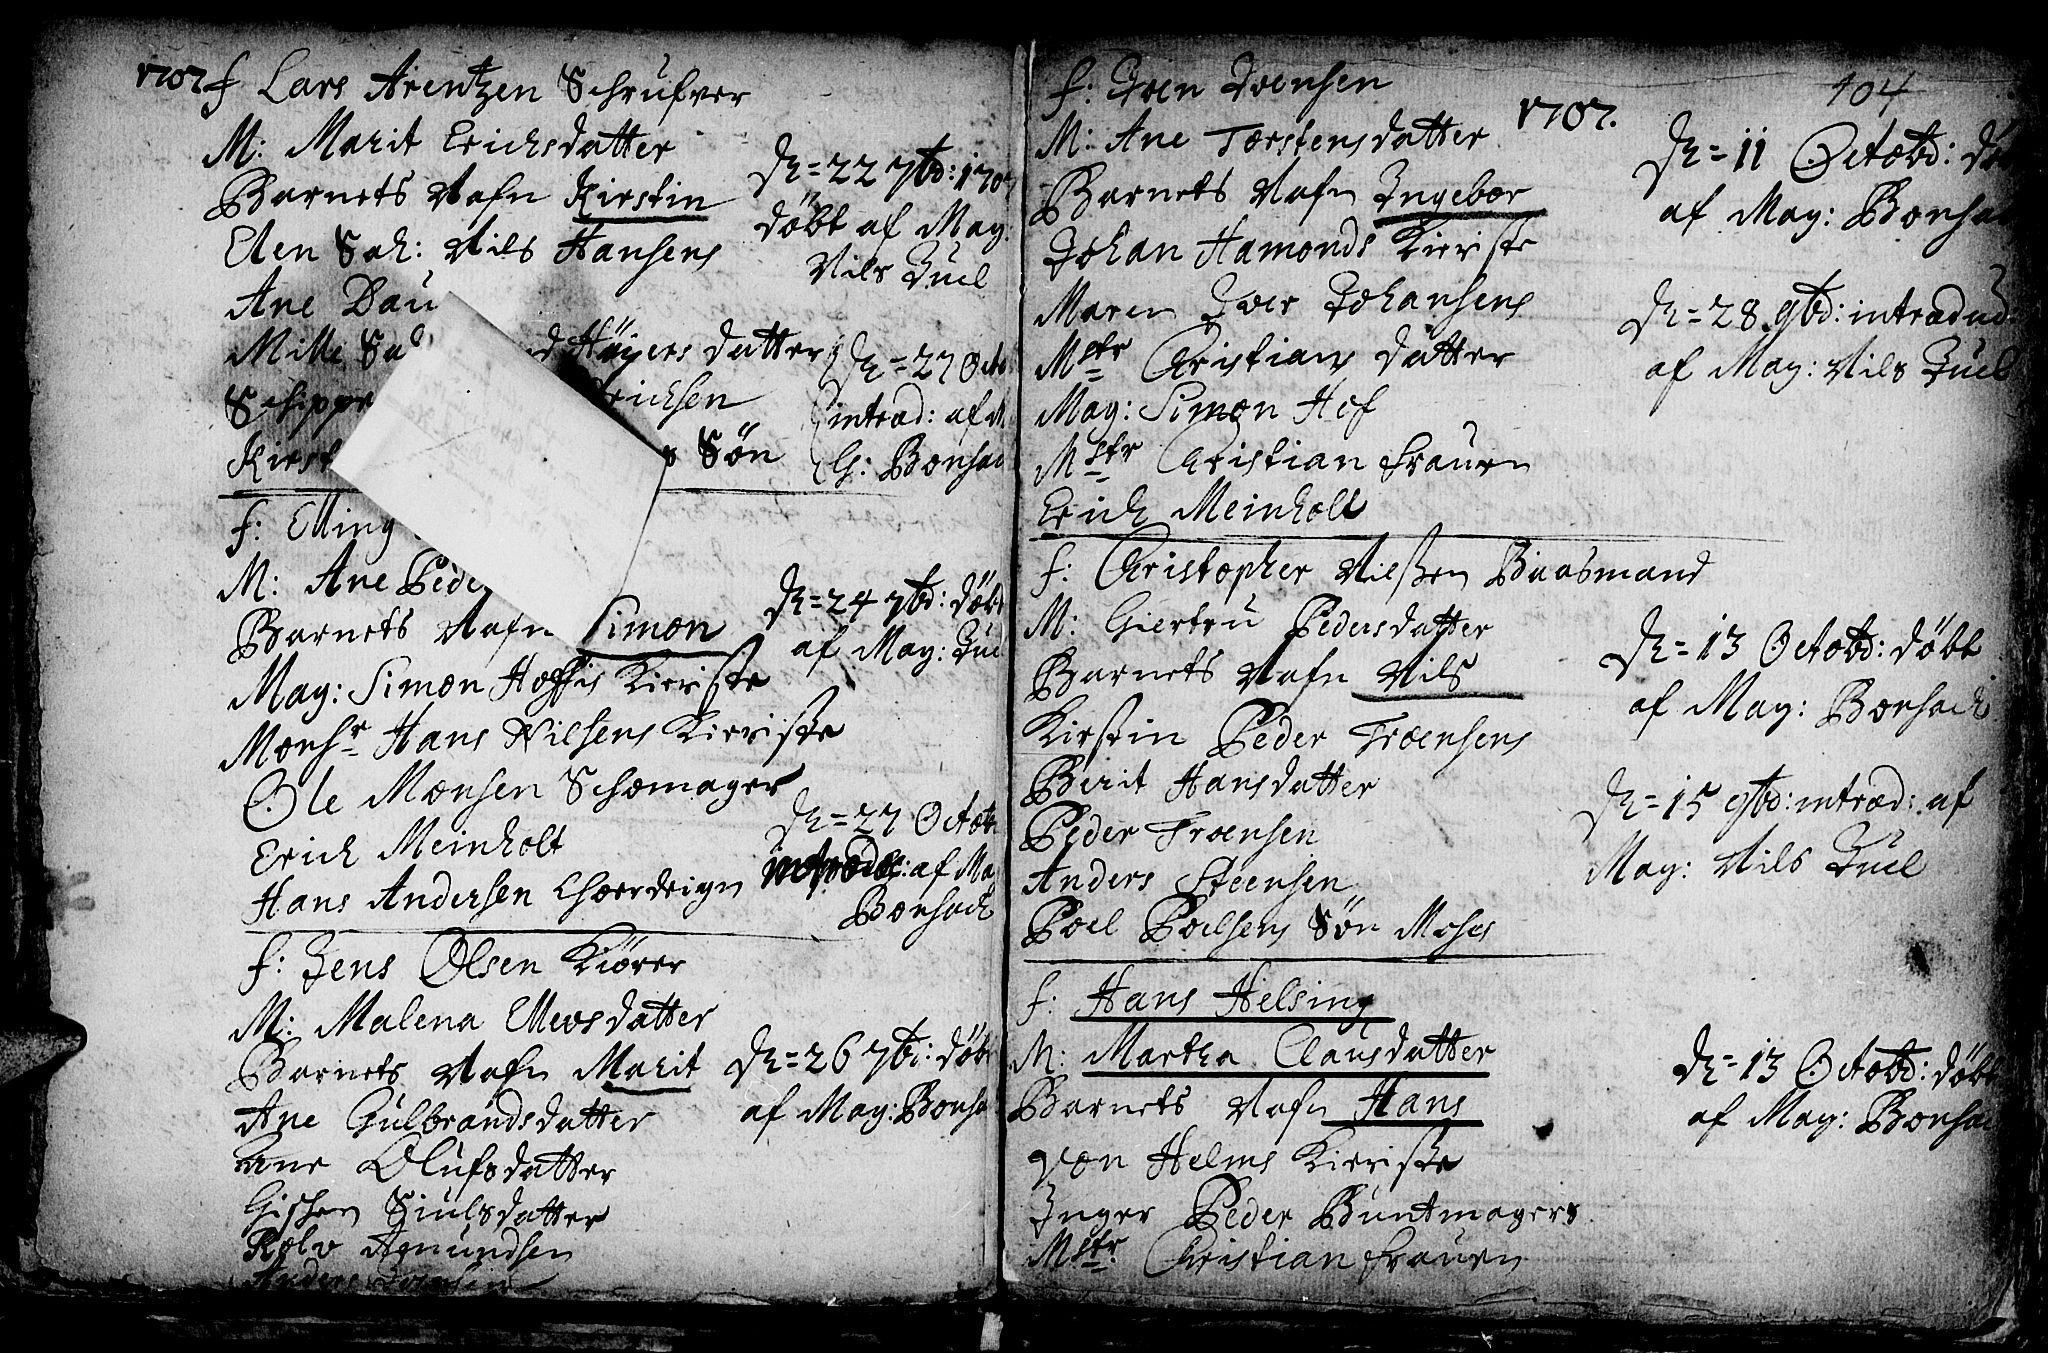 1707 f Lars Arentzen Schrufver
M: Marit Erichsdatter
Barnets Nafn Kirstin
Elen Sal: Nils Hansens
Ane Dau
Mille Sal Höyers datter
Schippe Erichsen
Kirst Sön
D = 22 7bd: 1707
döbt af Mag
Nils Juel
D = 27 Octo
introd: af M
Ch: Bonsach
f: Elling
M: Ane Peder
Barnets Nafn Simon
Mag: Simon Hoffis Kieriste
Monsr Hans Nilsens Kieriste
Ole Monsen Schomager
Erich Meinholt
Hans Andersen Choerdeign
D = 24 7bd: döbt
af Mag: Juel
D = 27 Octob
introd: af Ma
Bonsach
f: Jens Olsen Kiörer
M: Malena Ellevsdatter
Barnets Nafn Marit
Ane Gulbrandsdatter
Ane Olufsdatter
Gishen Siulsdatter
Rolv Amundsen
Anders
D = 26 7b: döbt
af Mag: Bonsa
104
1707.
f: Iven Ivensen
M: Ane Torstensdatter
Barnets Nafn Ingebor
Johan Hamonds Kieriste
Maren Iver Johansens
Mstr Christians datter
Mag: Simon Hof
Mstr Christian frauen
Erich Meinholt
D = 11 Octobd: döb
af Mag: Bonsach
D = 28 9bd: introdud:
af Mag: Nils Juel
f: Christopher Nilssen Baasmand
M: Giertru Pedersdatter
Barnets Nafn Nils
Kirstin Peder Troensens
Berit Hansdatter
Peder Troensen
Anders Steensen
Poel Poelsens Sön Moses
D = 13 Octobd: döbt
af Mag: Bonsach
D = 15 9bd: introd: af
Mag: Nils Juel
f: Hans Helsing
M: Martha Clausdatter
Barnets Nafn Hans
von Helms Kieriste
Inger Peder Buntmagers
Mstr. Christian frauen
D = 13 Octobd: döbt
af Mag: Bonsach